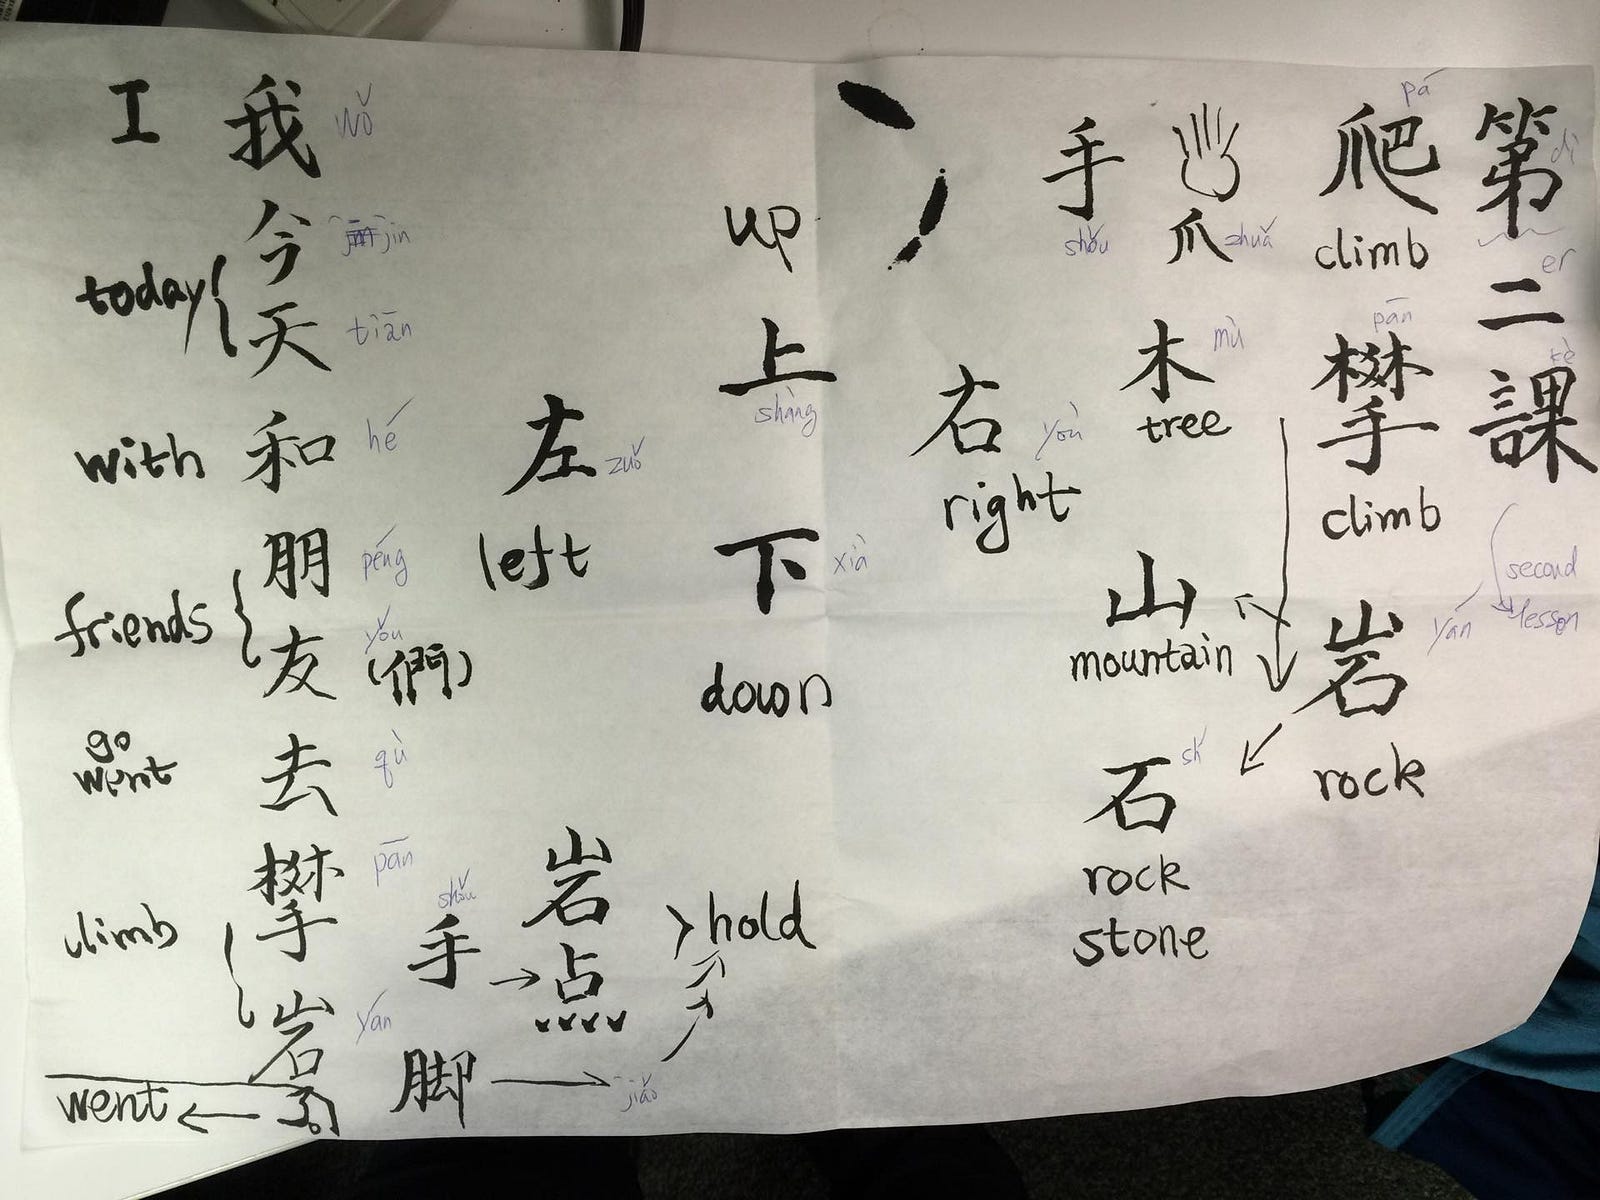 第 dì
二 er
課 kè
second
lesson
爬 pá
climb
攀 pān
climb
岩 yán
rock
手 shǒu
爪 zhuǎ
木 mù
tree
山
mountain
石 sh
rock
stone
右 yòu
right
up
上 shàng
下 xià
down
左 zuǒ
left
I 我 wǒ
today 今 jīn
天 tiān
with 和 hé
friends 朋 péng
友 yǒu
(們)
go
went 去 qù
climb 攀 pān
岩 yán
went ←
手 shǒu → 岩点 hold
脚 → jiǎo